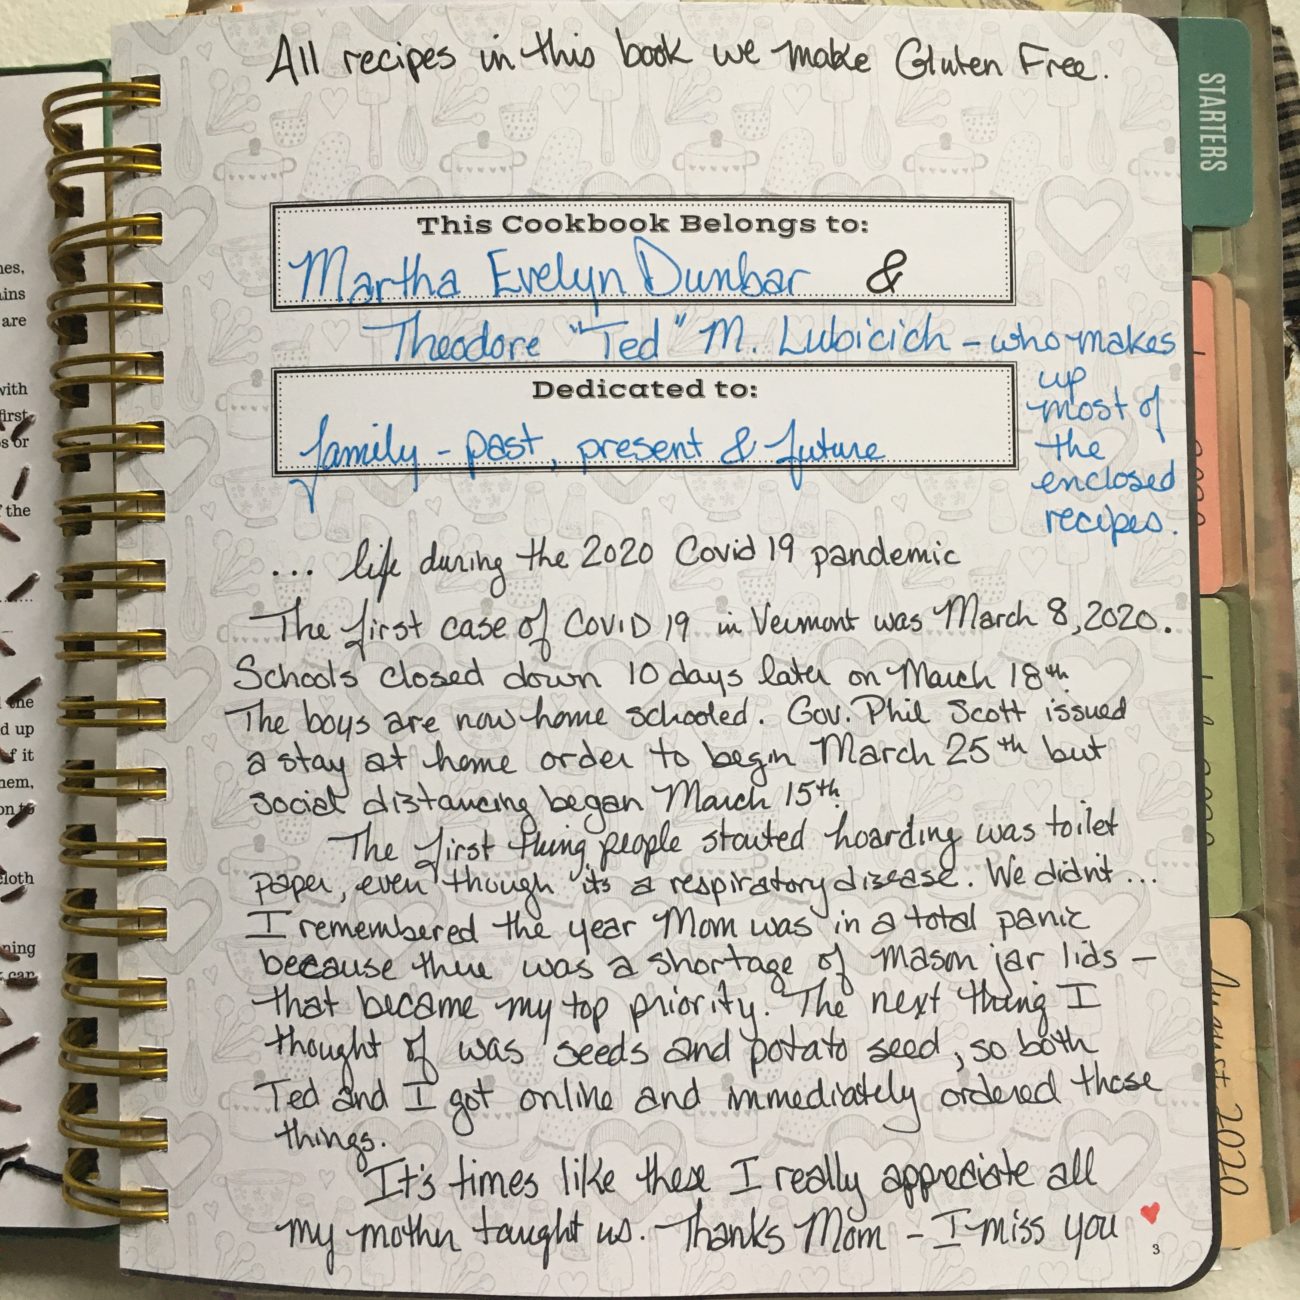 All recipes in this book we make Gluten Free.
STARTERS
This Cookbook Belongs to:
Martha Evelyn Dunbar &
Theodore "Ted" M. Lubicich - who makes
up
most of
the
enclosed
recipes.
Dedicated to:
family - past, present & future
... life during the 2020 Covid 19 pandemic
The first case of COVID 19 in Vermont was March 8, 2020.
Schools closed down 10 days later on March 18th.
The boys are now home schooled. Gov. Phil Scott issued
a stay at home order to begin March 25th but
social distancing began March 15th.
The first thing people started hoarding was toilet
paper, even though its a respiratory disease. We didn't ...
I remembered the year Mom was in a total panic
because there was a shortage of mason jar lids -
that became my top priority. The next thing I
thought of was seeds and potato seed, so both
Ted and I got online and immediately ordered those
things.
It's times like these I really appreciate all
my mother taught us. Thanks Mom - I miss you
3
August 2020
are
with
first
s or
the
the
d up
f it
hem,
cloth
can